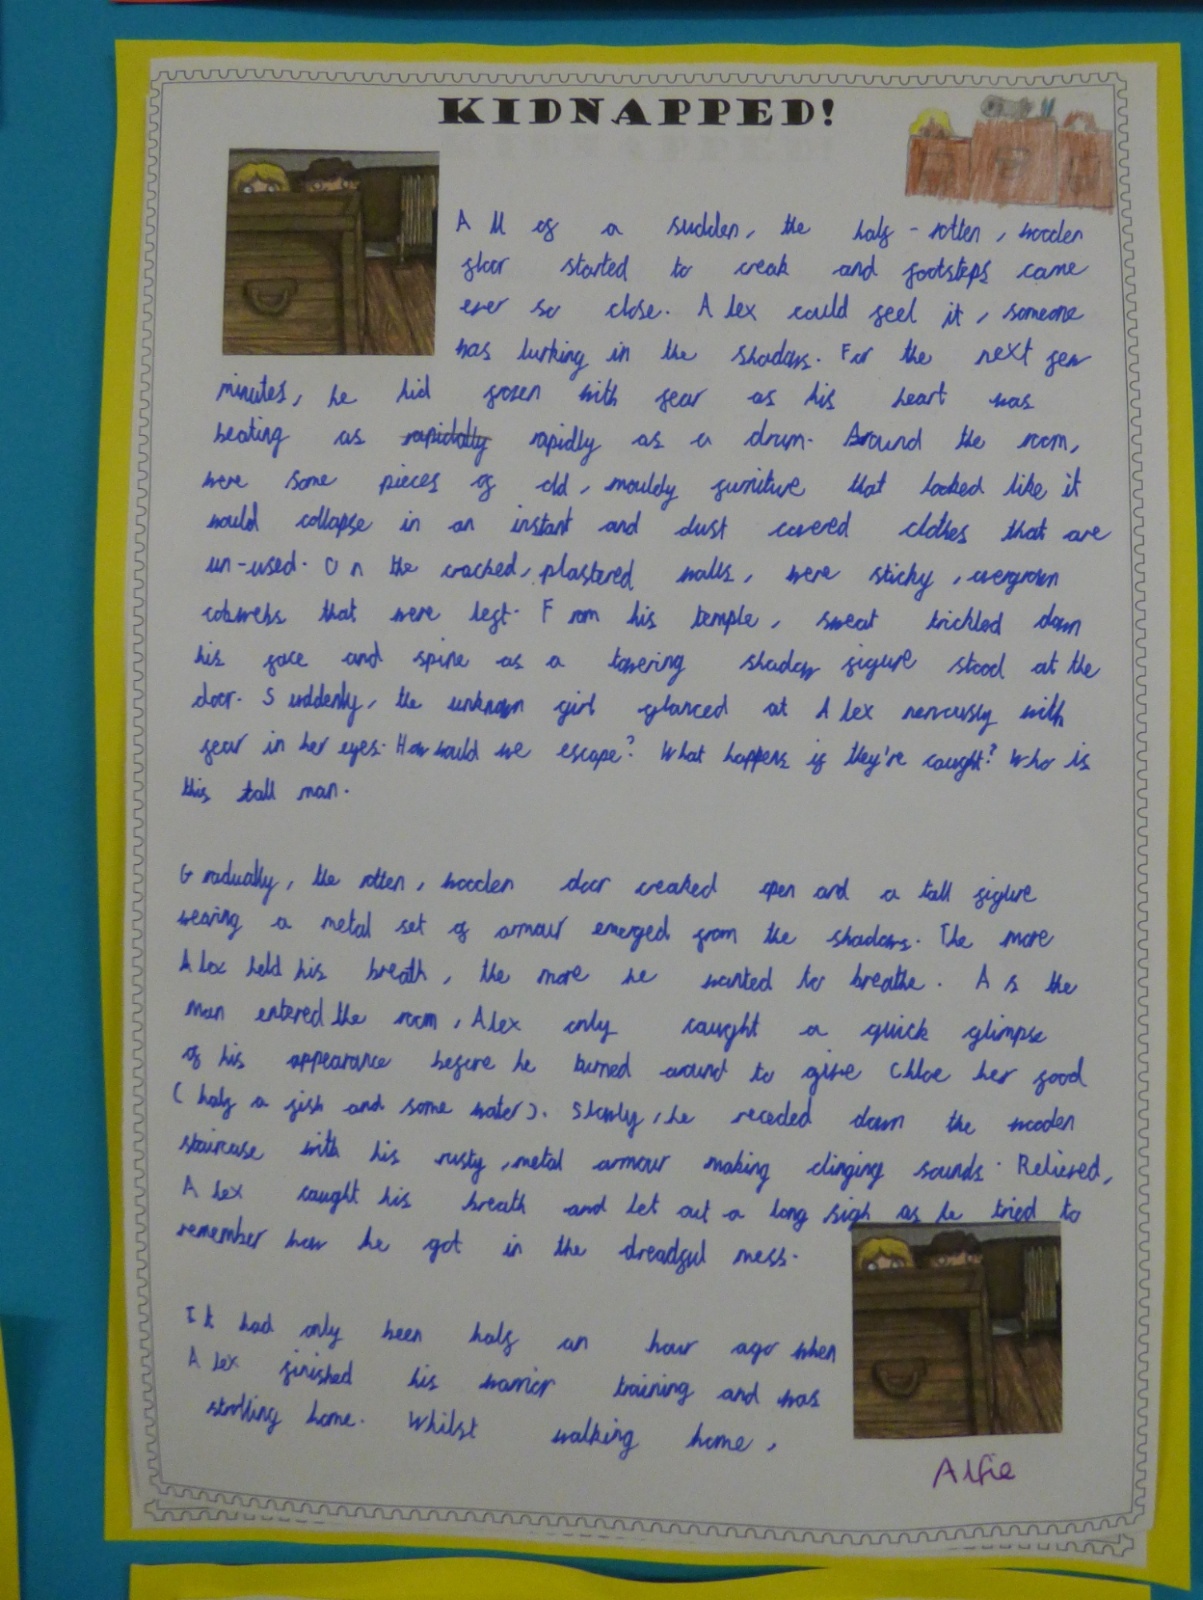 KIDNAPPED!
All of a sudden, the half-rotten, wooden
floor started to creak and footsteps came
ever so close. Alex could feel it, someone
was lurking in the shadows. For the next few
minutes, he hid frozen with fear as his heart was
beating as rapidally rapidly as a drum. Around the room,
were some pieces of old, mouldy furniture that looked like it
would collapse in an instant and dust covered clothes that are
un-used. On the cracked, plastered walls, were sticky, overgrown
cobwebs that were left. From his temple, sweat trickled down
his face and spine as a towering shadow figure stood at the
door. Suddenly, the unknown girl glanced at Alex nervously with
fear in her eyes. How would we escape? What happens if they're caught? Who is
this tall man.
Gradually, the rotten, wooden door creaked open and a tall figure
wearing a metal set of armour emerged from the shadows. The more
Alex held his breath, the more he wanted to breathe. As the
man entered the room, Alex only caught a quick glimpse
of his appearance before he turned around to give Chloe her food
(half a fish and some water). Slowly, he receded down the wooden
staircase with his rusty, metal armour making clinging sounds. Relieved,
Alex caught his breath and let out a long sigh as he tried to
remember how he got in the dreadful mess.
It had only been half an hour ago when
Alex finished his warrior training and was
strolling home. Whilst walking home,
Alfie